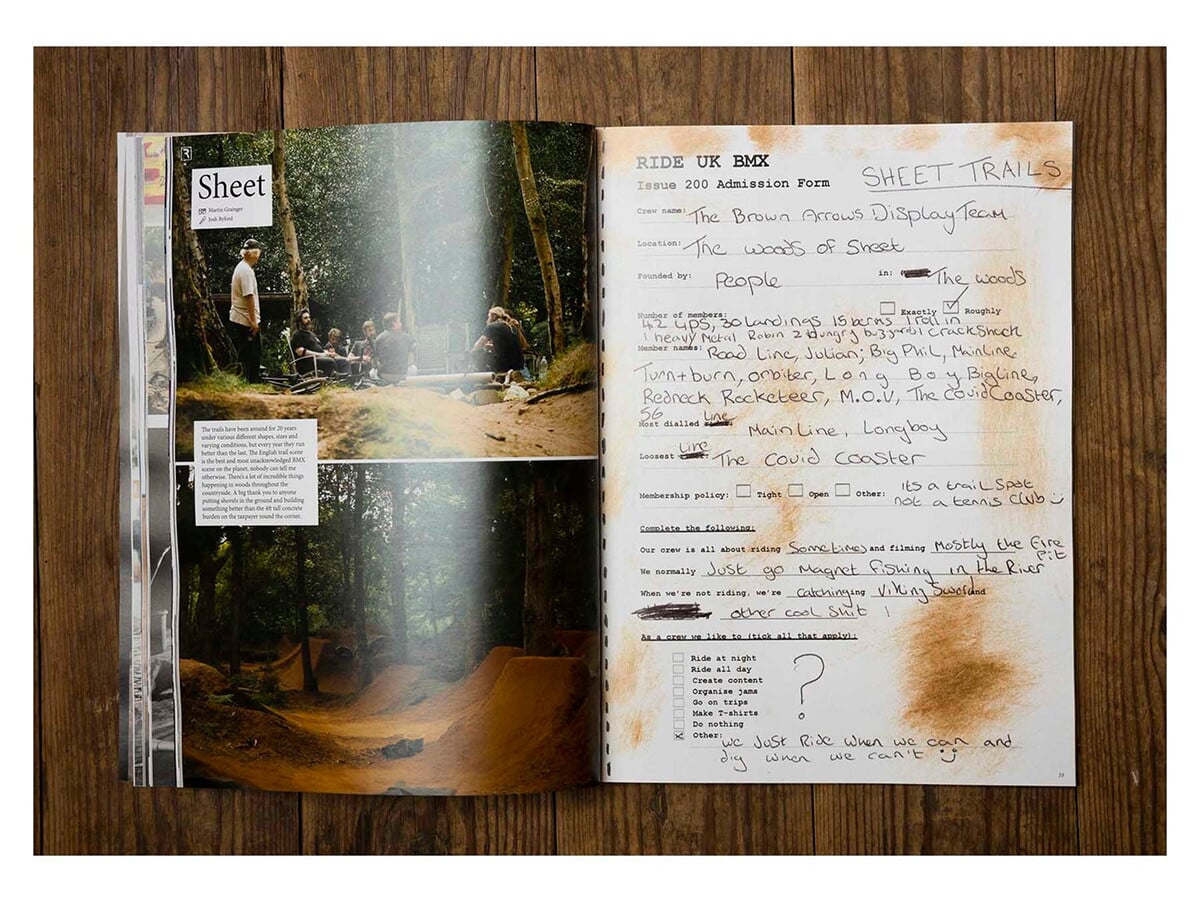 R
Sheet
Martin Grainger
Josh Byford
The trails have been around for 20 years
under various different shapes, sizes and
varying conditions, but every year they run
better than the last. The English trail scene
is the best and most unacknowledged BMX
scene on the planet, nobody can tell me
otherwise. There's a lot of incredible things
happening in woods throughout the
countryside. A big thank you to anyone
putting shovels in the ground and building
something better than the 4ft tall concrete
burden on the taxpayer round the corner.
RIDE UK BMX
SHEET TRAILS
Issue 200 Admission Form
Crew name: The Brown Arrows Display Team
Location: The woods of Sheet
Founded by: People in: The woods
Number of members: Exactly Roughly
42 ups, 30 landings 15 berms 1 troll in
1 heavy Metal Robin 2 Hungry buzzards 1 Crackshack
Member names: Road Line, Julian, Big Phil, Mainline
Turn+burn, orbiter, Long Boy, Bigline,
Redneck Rocketeer, M.O.V, The Covid Coaster,
56
Most dialled Line Main Line, Longboy
Loosest Line The Covid Coaster
Membership policy: Tight Open Other: its a trail spot
not a tennis club
Complete the following:
Our crew is all about riding Sometimes and filming Mostly the Fire
Pit
We normally Just go Magnet Fishing in the River
When we're not riding, we're catchinging Viking Sword and
other cool shit !
As a crew we like to (tick all that apply):
Ride at night
Ride all day
Create content
Organise jams
Go on trips
Make T-shirts
Do nothing
?
Other: we Just Ride when we can and
dig when we can't
55